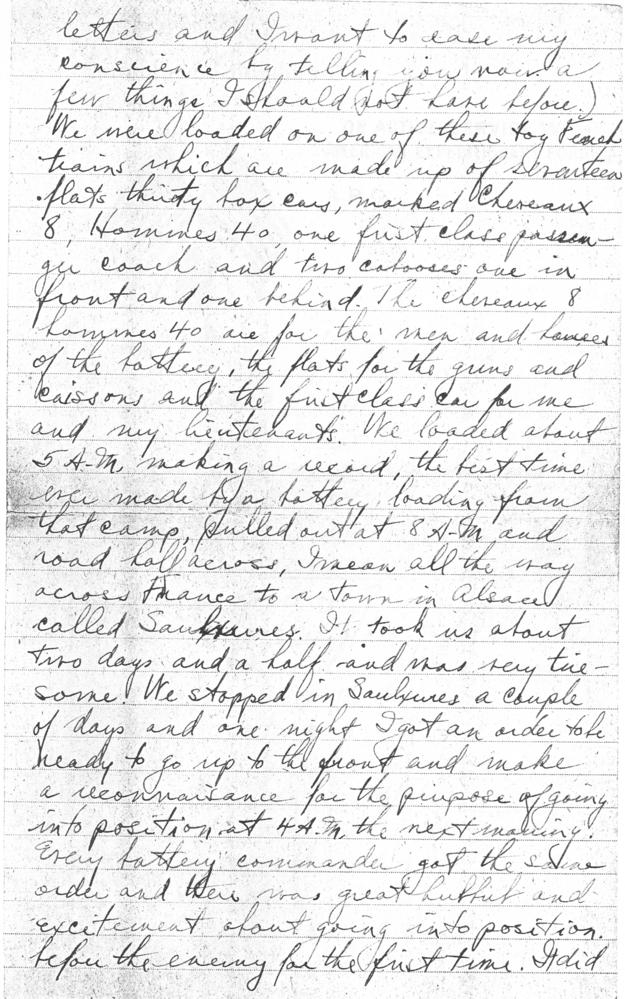 letters and I want to ease my
conscience by telling you now a
few things I should not have before.)
We were loaded on one of these toy French
trains which are made up of seventeen
flats thirty box cars, marked Cheveaux
8, Hommes 40, one first class passen-
ger coach and two cabooses one in
front and one behind. The cheveaux 8
hommes 40 are for the men and horses
of the battery, the flats for the guns and
caissons and the first class car for me
and my lieutenants. We loaded about
5 A.M. making a record, the best time
ever made by a battery loading from
that camp, pulled out at 8 A.M. and
road half across, I mean all the way
across France to a town in Alsace
called Saulxures. It took us about
two days and a half and was very tire-
some. We stopped in Saulxures a couple
of days and one night I got an order to be
ready to go up to the front and make
a reconnaisance for the purpose of going
into position at 4 A.M. the next morning.
Every battery commander got the same
order and there was great hubbub and
excitement about going into position
before the enemy for the first time. It did